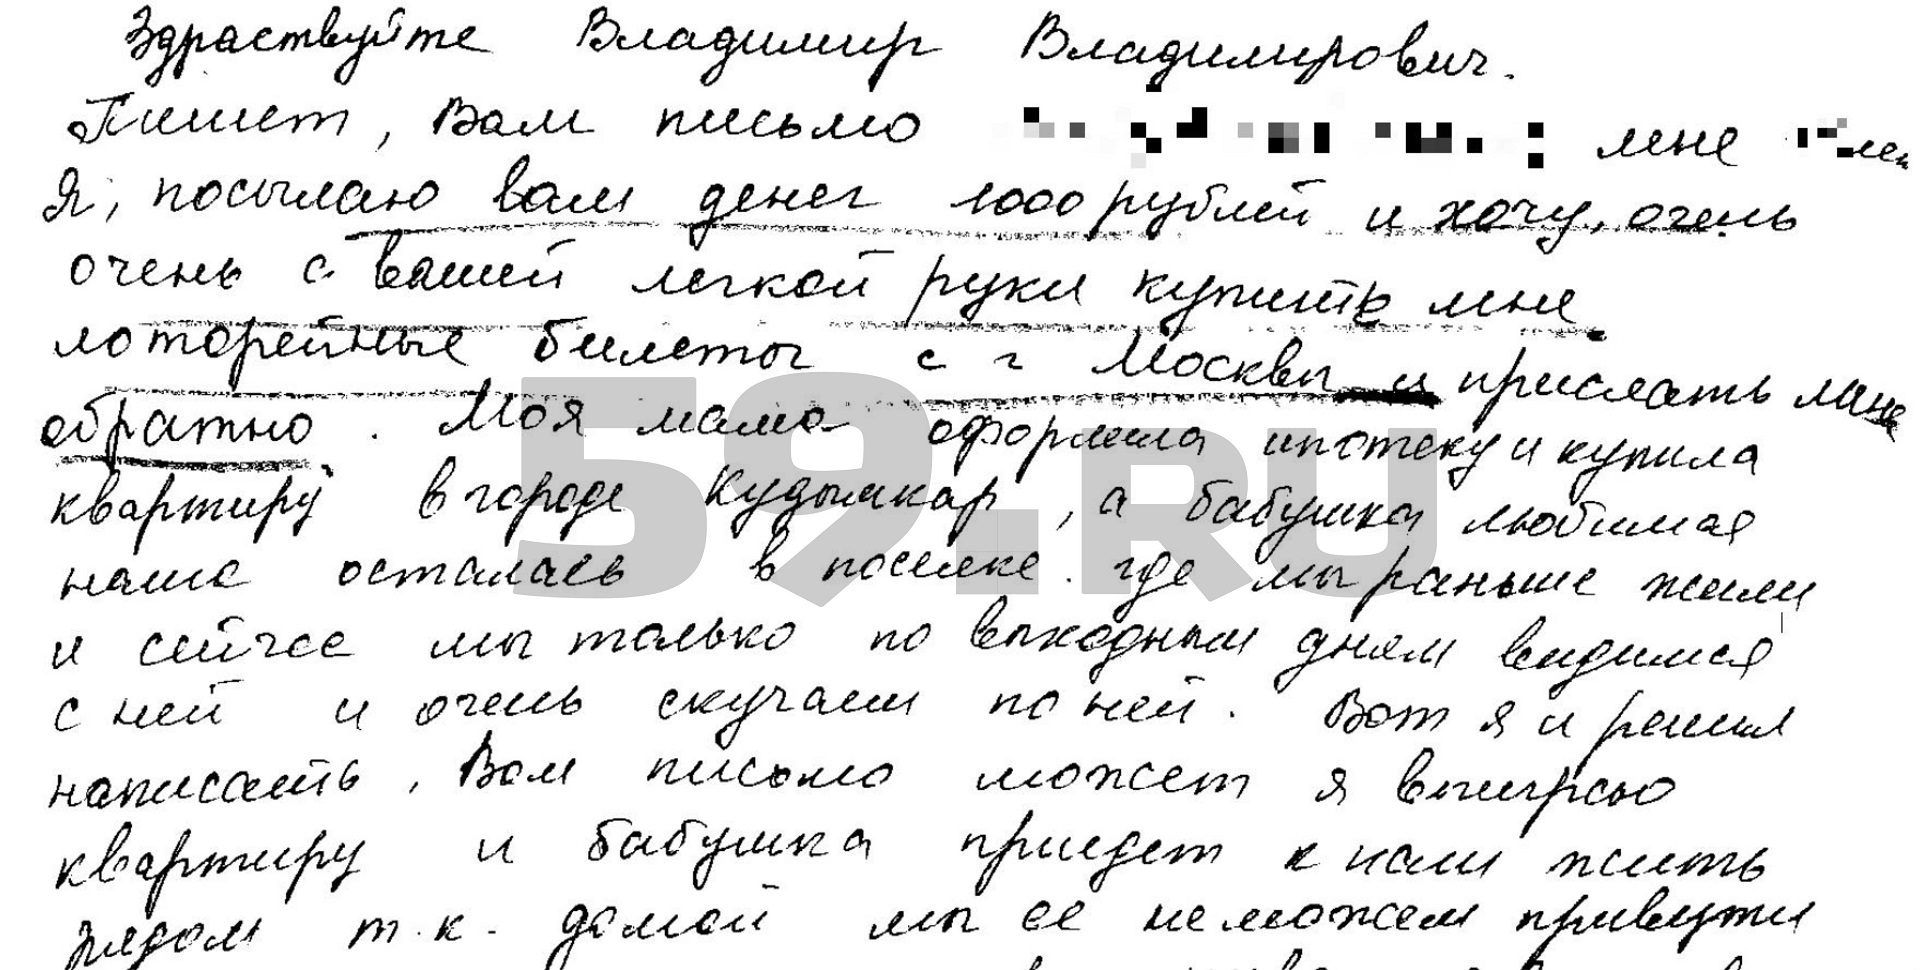 Здраствуйте Владимир Владимирович.
Пишет, Вам письмо мне
Я, посылаю вам денег 1000 рублей и хочу, очень
очень с вашей легкой руки купить мне
лоторейные билеты с г Москвы и прислать мне
обратно. Моя мама оформила ипотеку и купила
квартиру в городе Кудымкар, а бабушка любимая
наша осталась в поселке. где мы раньше жили
и сейчас мы только по выходным дням видимся
с ней и очень скучаем по ней. Вот я и решил
написать, Вам письмо может я выиграю
квартиру и бабушка приедет к нам жить
рядом т.к. домой мы ее не можем привезти
59.RU